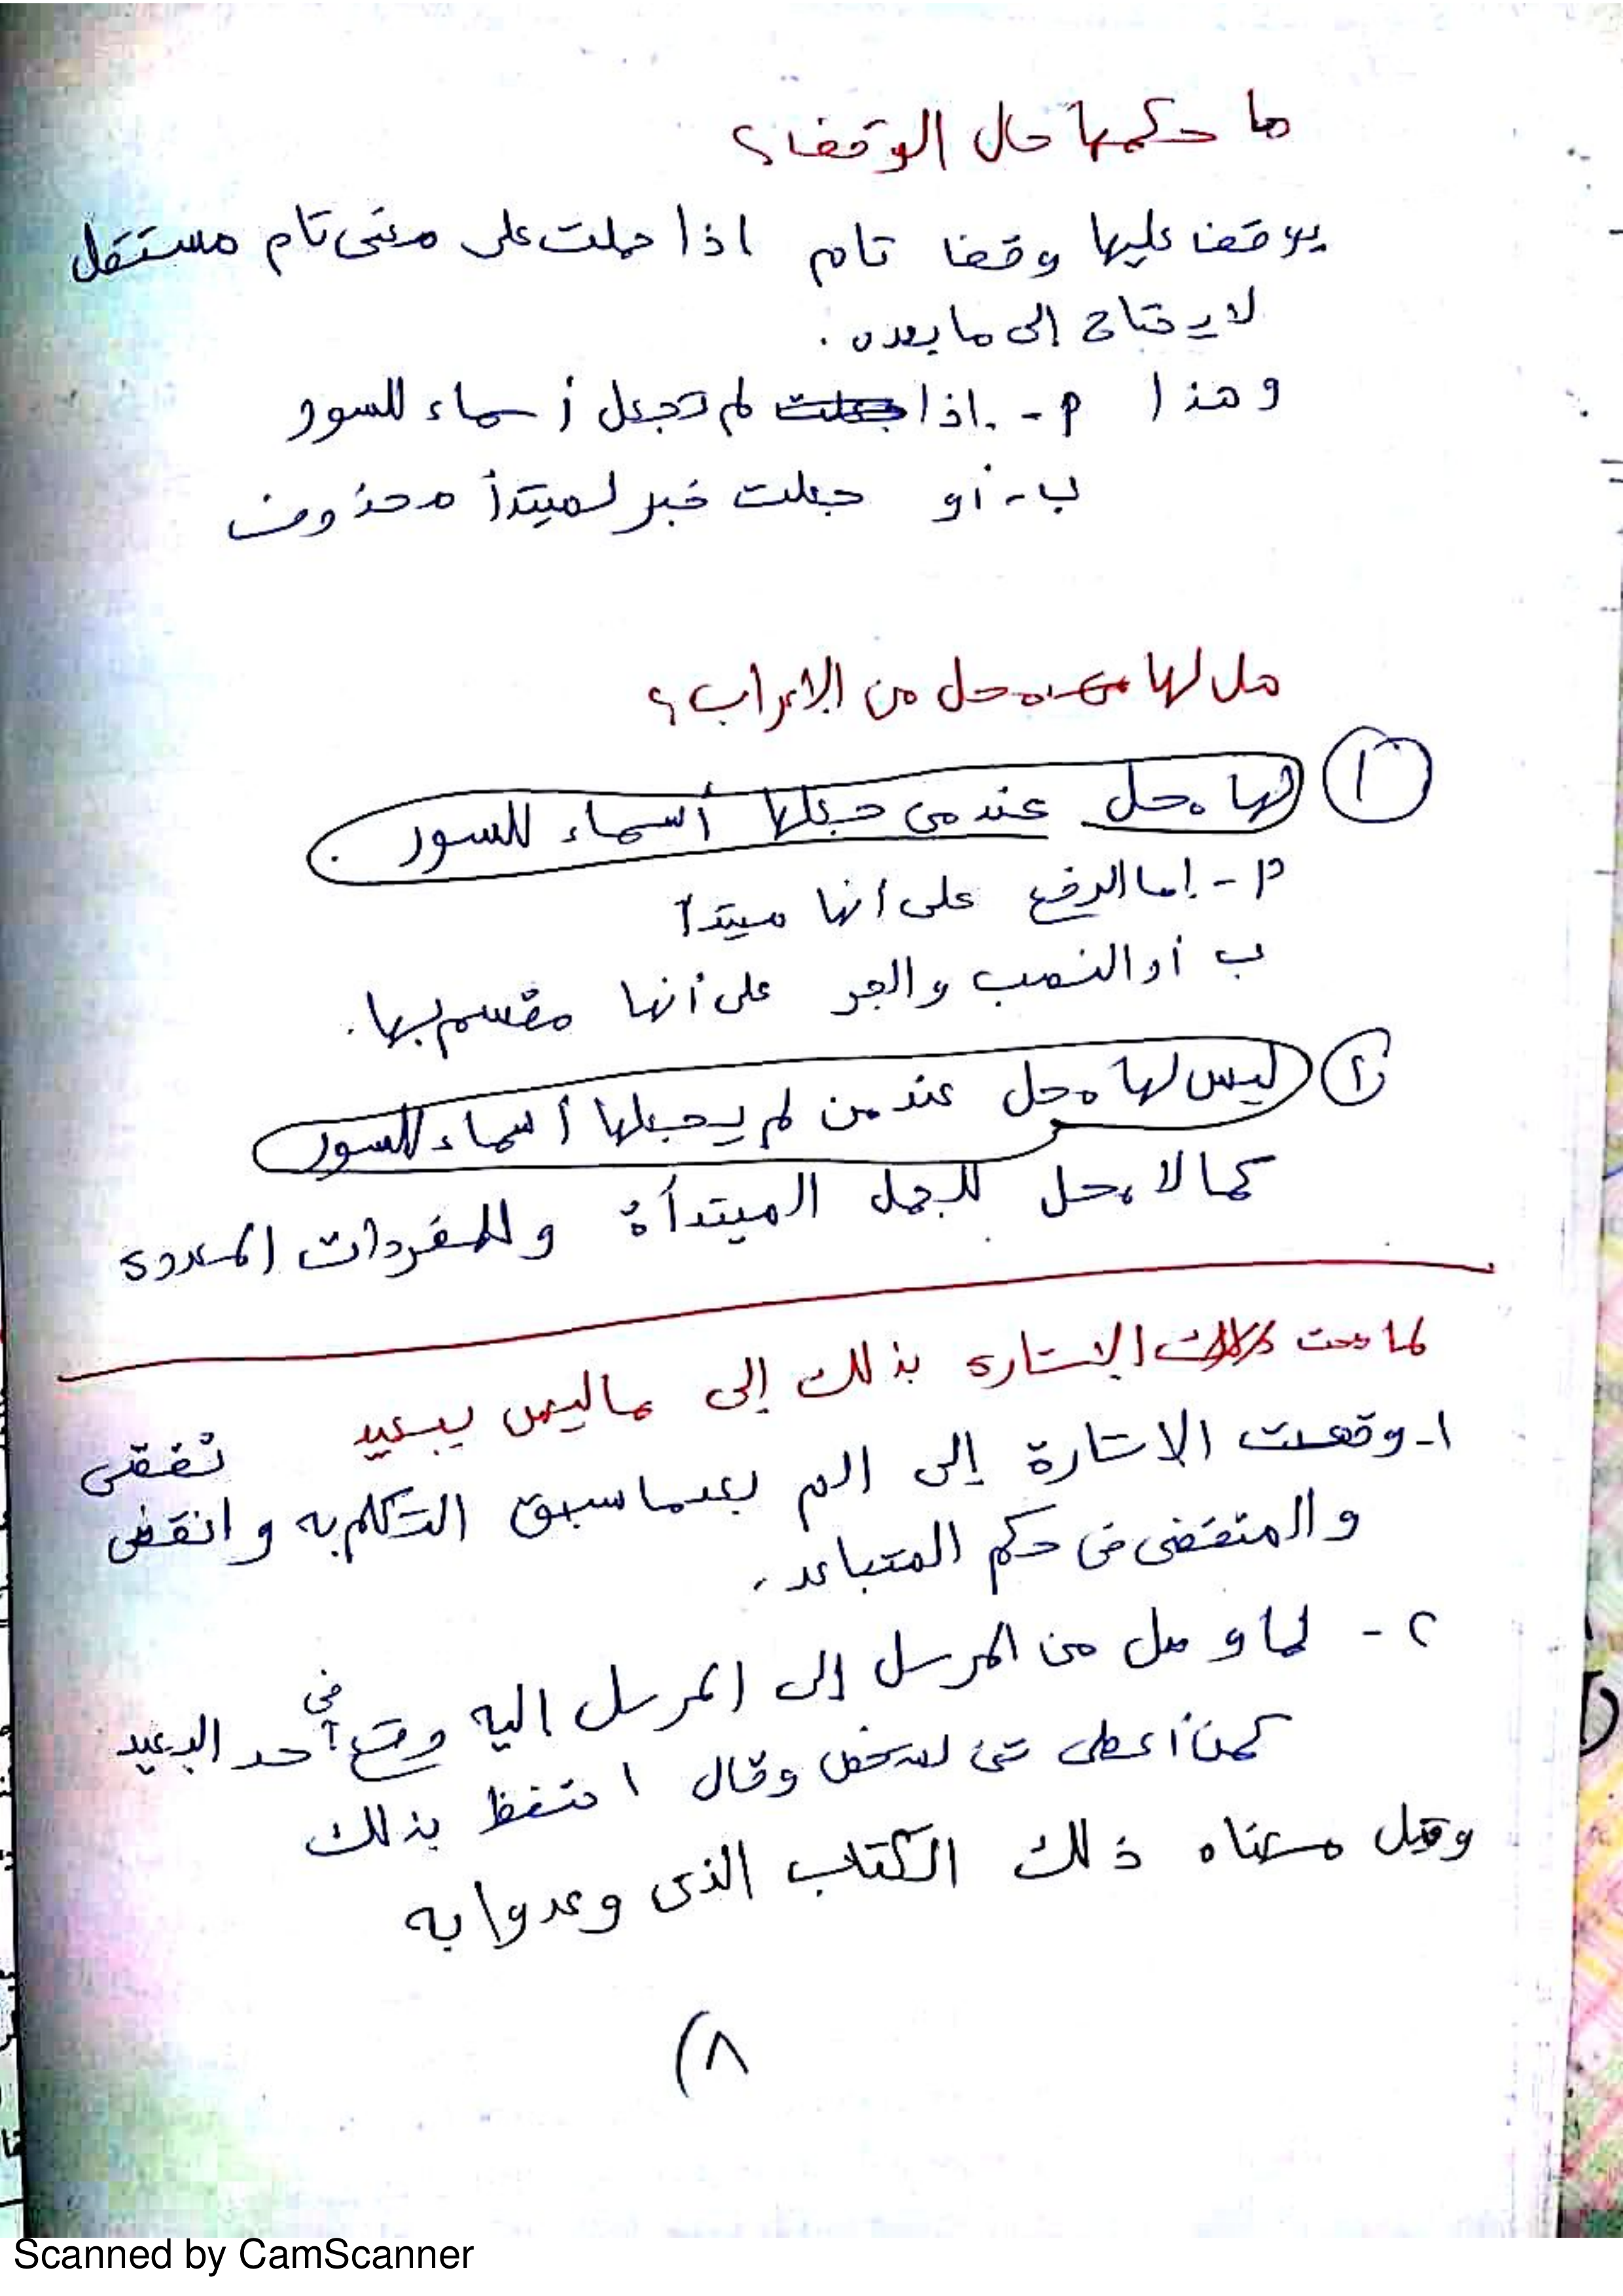 ما حكمها حال الوقف؟
يوقف عليها وقفا تام اذا حملت على معنى تام مستقل
لا يحتاج إلى ما بعده .
وهذا أ - اذا لم تجعل أسماء للسور
ب - أو جعلت خبر لمبتدأ محذوف
هل لها محل من الاعراب؟
١ لها محل عند من جعلها أسماء للسور .
أ - إما الرفع على أنها مبتدأ
ب أو النصب والجر على أنها مقسم بها .
٢ ليس لها محل عند من لم يجعلها أسماء للسور
كما لا محل للجمل المبتدأة وللمفردات المعددة
لما صحت الاشارة بذلك إلى ما ليس ببعيد
١- وقعت الاشارة إلى الم بعدما سبق التكلم به وانقضى
والمتقضى فى حكم المتباعد .
٢ - لما وصل من المرسل إلى المرسل اليه وقع في حد البعيد
كمن أعطى شئ لشخص وقال احتفظ بذلك
وقيل معناه ذلك الكتاب الذى وعدوا به
٨)
Scanned by CamScanner